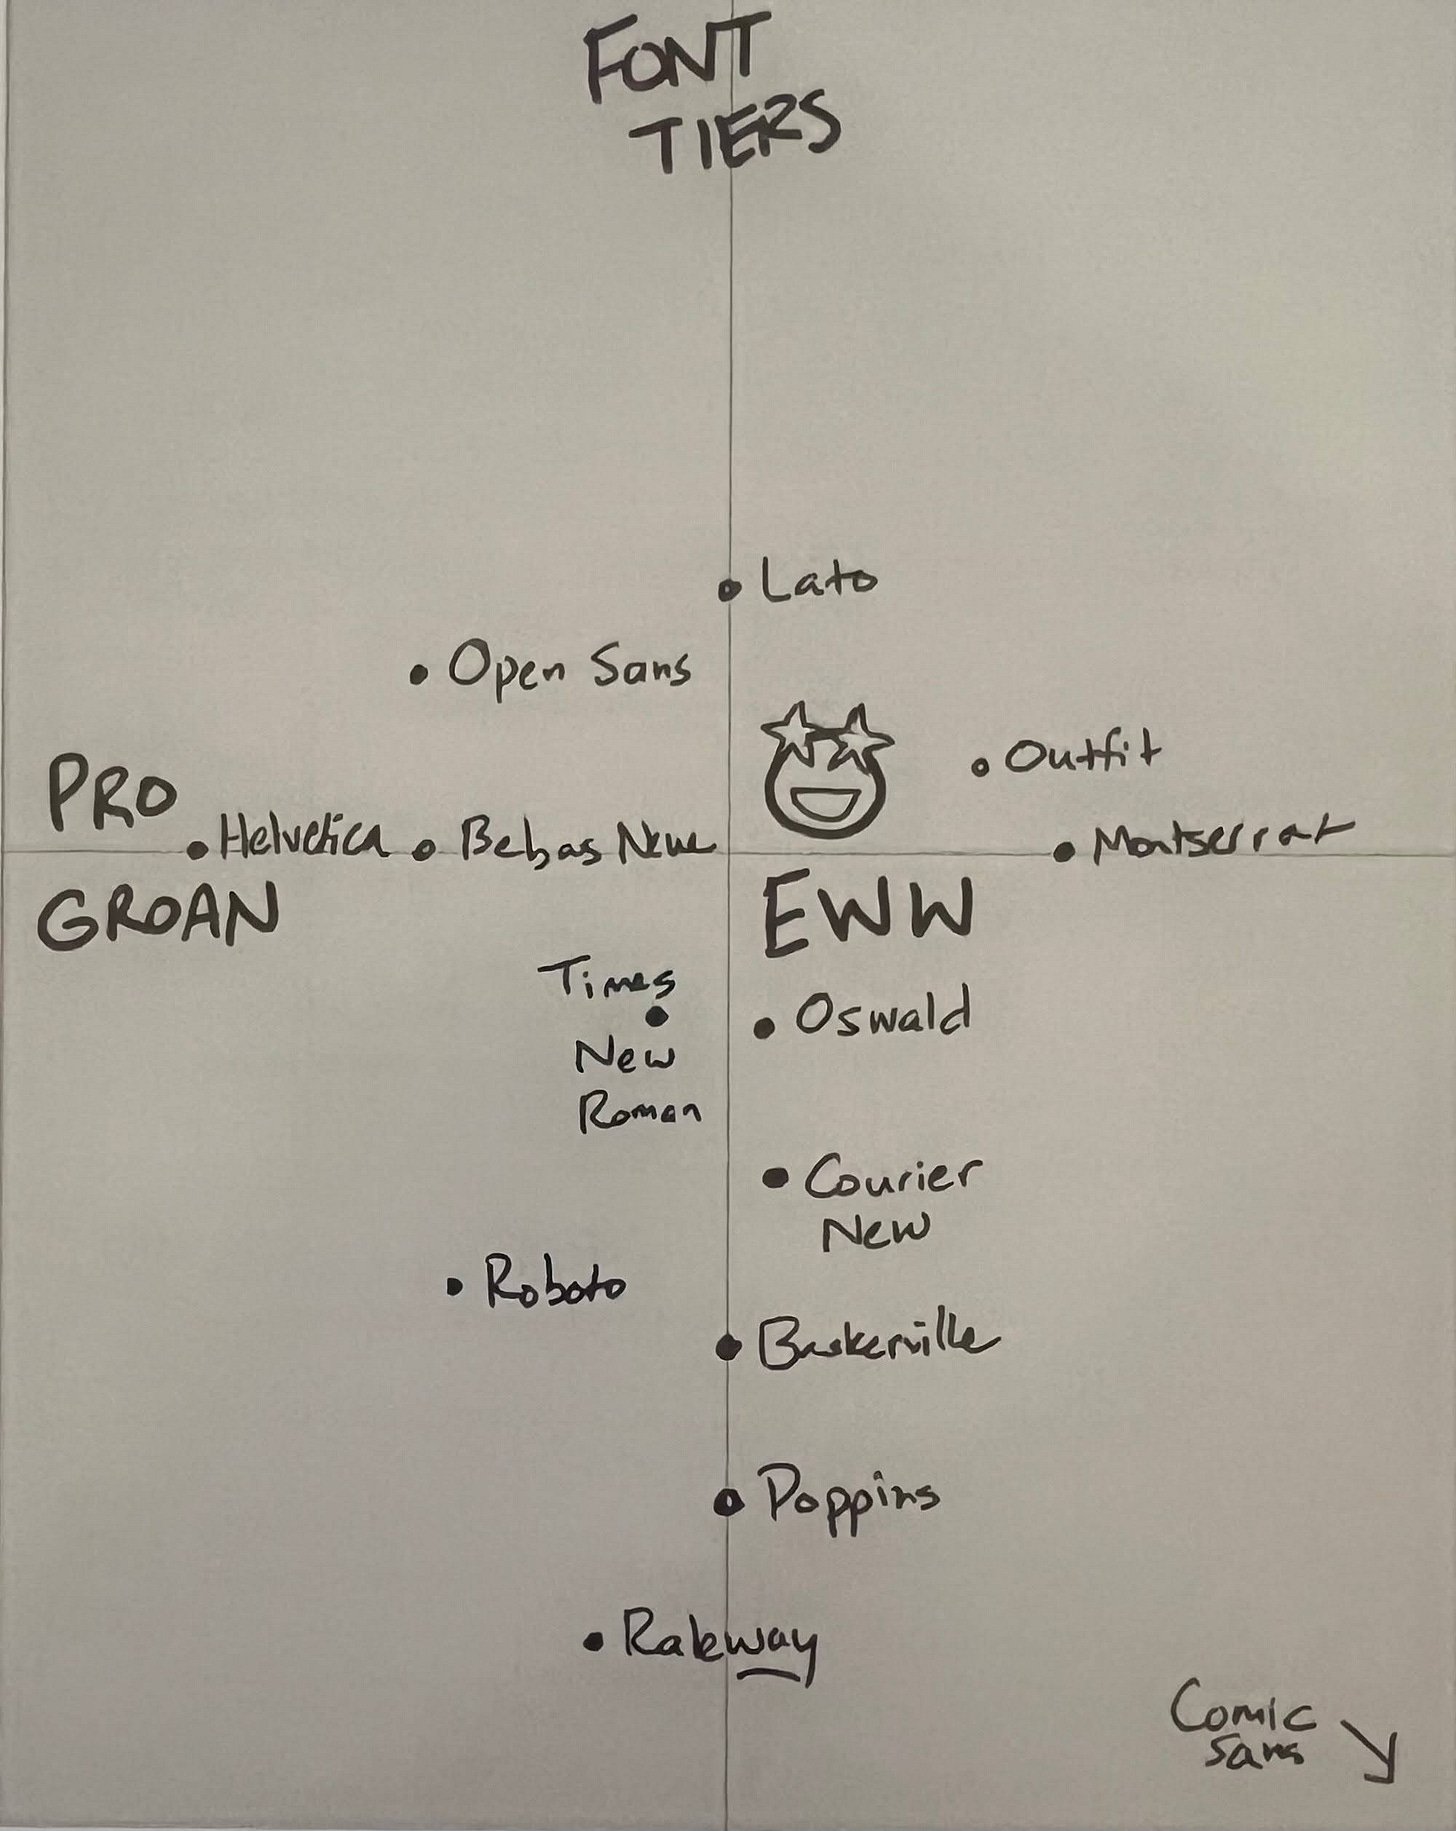 FONT
TIERS
Lato
Open Sans
Outfit
PRO
Helvetica
Bebas Neue
Montserrat
GROAN
EWW
Times
New
Roman
Oswald
Courier
New
Roboto
Baskerville
Poppins
Raleway
Comic
Sans